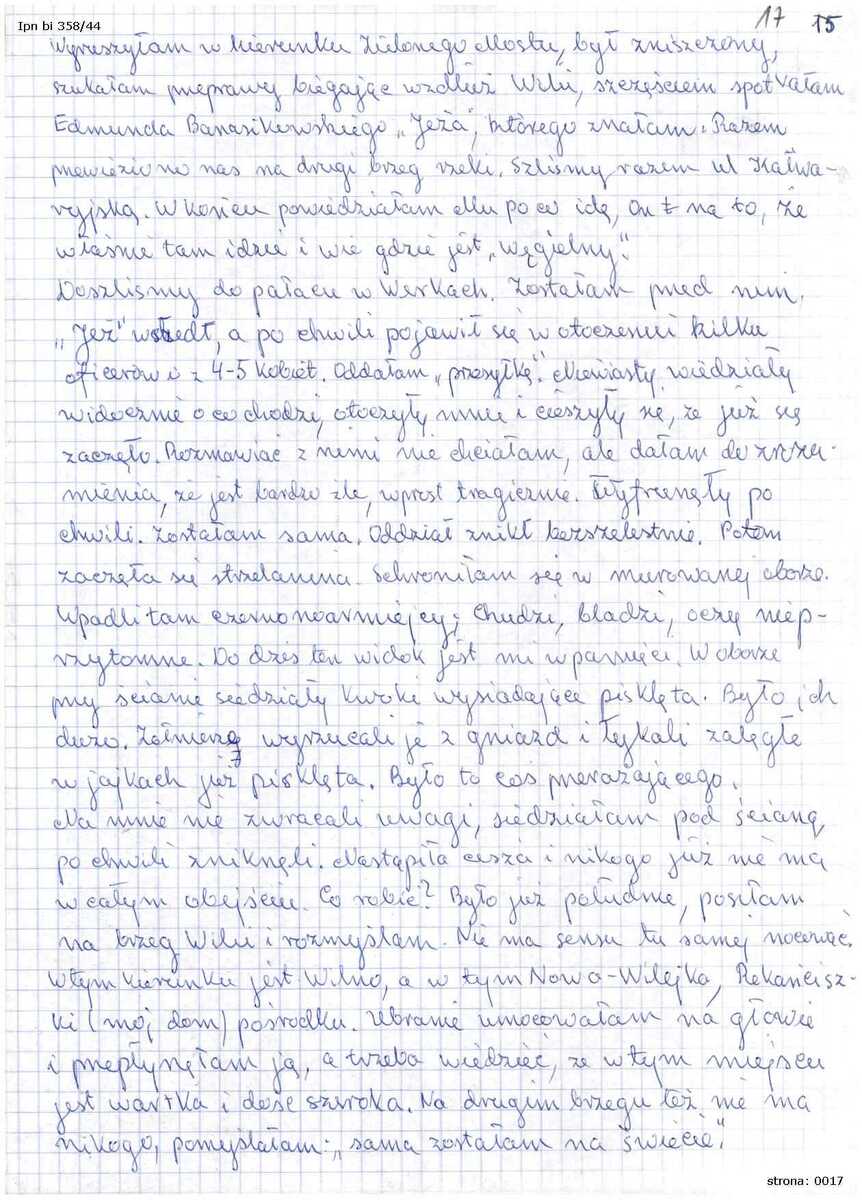 Ipn bi 358/44
17 15
Wyruszyłam w kierunku Zielonego Mostu, był zniszczony,
szukałam przeprawy biegając wzdłuż Wilii, szczęściem spotkałam
Edmunda Banasikowskiego „Jeża", którego znałam. Razem
przewieziono nas na drugi brzeg rzeki. Szliśmy razem ul Kalwa-
ryjską. W końcu powiedziałam Mu po co idę, On na to, że
właśnie tam idzie i wie gdzie jest „Węgielny".
Doszliśmy do pałacu w Werkach. Zostałam przed nim.
„Jeż" wszedł, a po chwili pojawił się w otoczeniu kilku
oficerów i z 4-5 kobiet. Oddałam „przesyłkę". Niewiasty wiedziały
widocznie o co chodzi, otoczyły mnie i cieszyły się, że już się
zaczęło. Rozmawiać z nimi nie chciałam, ale dałam do zrozu-
mienia, że jest bardzo źle, wprost tragicznie. Wyfrunęły po
chwili. Zostałam sama. Oddział znikł bezszelestnie. Potem
zaczęła się strzelanina. Schroniłam się w murowanej oborze.
Wpadli tam czerwonoarmiejcy; Chudzi, bladzi, oczy niep-
rzytomne. Do dziś ten widok jest mi w pamięci. W oborze
przy ścianie siedziały kwoki wysiadające pisklęta. Było ich
dużo. Żołnierze wyrzucali je z gniazd i łykali zalęgłe
w jajkach już pisklęta. Było to coś przerażającego.
Na mnie nie zwracali uwagi, siedziałam pod ścianą,
po chwili zniknęli. Nastąpiła cisza i nikogo już nie ma
w całym obejściu. Co robić? Było już południe, poszłam
na brzeg Wilii i rozmyślam. Nie ma sensu tu samej nocować.
W tym kierunku jest Wilno, a w tym Nowa-Wilejka, Rekańcisz-
ki (mój dom) pośrodku. Ubranie umocowałam na głowie
i przepłynęłam ją, a trzeba wiedzieć, że w tym miejscu
jest wartka i dość szeroka. Na drugim brzegu też nie ma
nikogo, pomyślałam: „sama zostałam na świecie".
strona: 0017